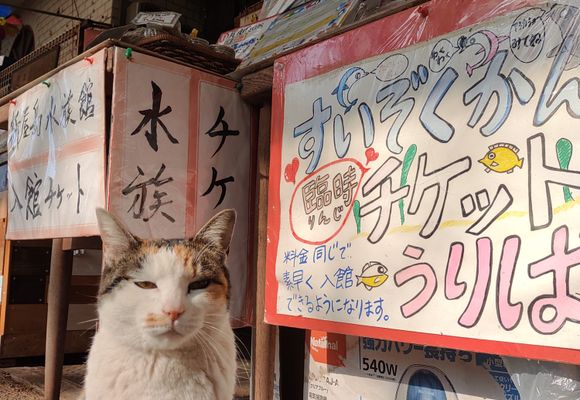 水族館
入館チケット
水族
チケ
すいぞくかん
みてね
臨時
りんじ
チケット
うりば
料金 同じで
素早く 入館
できるようになります。
National
540W